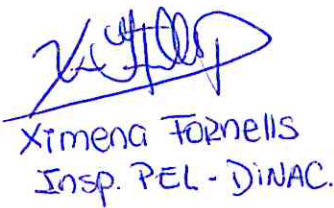 Ximena FORnells
Insp. PEL - DiNAC.